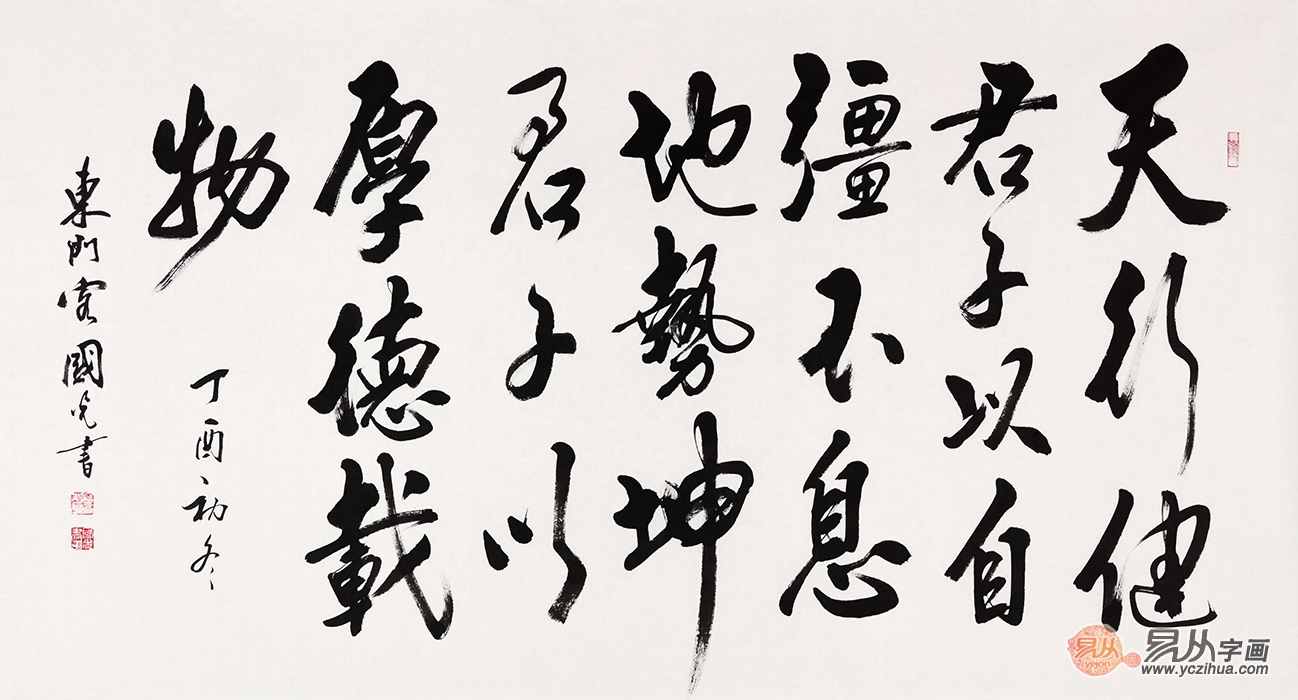 天行健
君子以自
彊不息
地勢坤
君子以
厚德載
物
丁酉初冬
東門客國光書
易从字画
www.yczihua.com
易从
yicon